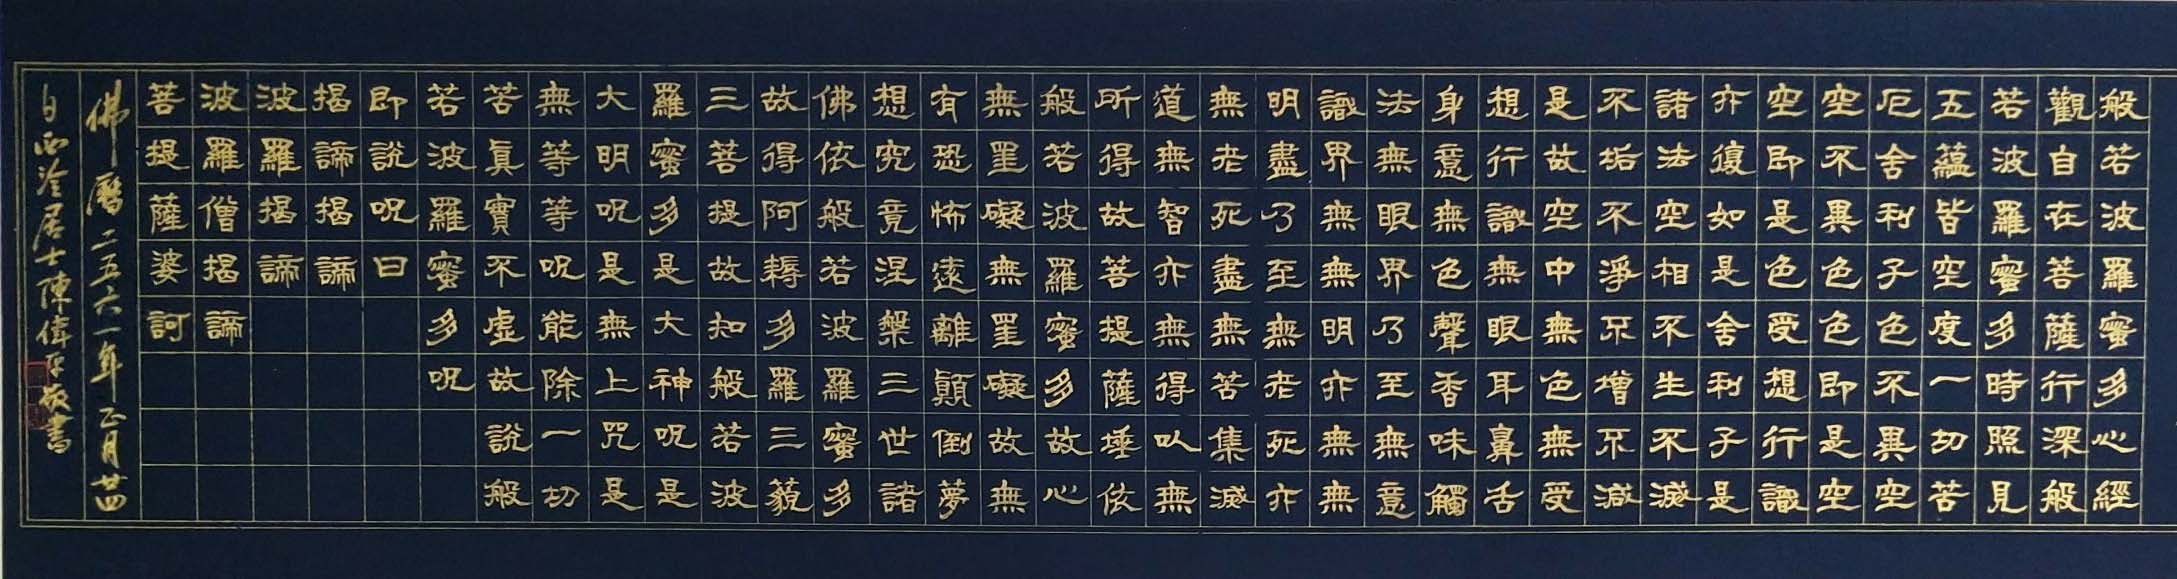 般若波羅蜜多心經
觀自在菩薩行深般
若波羅蜜多時照見
五蘊皆空度一切苦
厄舍利子色不異空
空不異色色即是空
空即是色受想行識
亦復如是舍利子是
諸法空相不生不滅
不垢不淨不增不減
是故空中無色無受
想行識無眼耳鼻舌
身意無色聲香味觸
法無眼界乃至無意
識界無無明亦無無
明盡乃至無老死亦
無老死盡無苦集滅
道無智亦無得以無
所得故菩提薩埵依
般若波羅蜜多故心
無罣礙無罣礙故無
有恐怖遠離顛倒夢
想究竟涅槃三世諸
佛依般若波羅蜜多
故得阿耨多羅三藐
三菩提故知般若波
羅蜜多是大神呪是
大明呪是無上咒是
無等等呪能除一切
苦真實不虛故說般
若波羅蜜多呪
即說呪曰
揭諦揭諦
波羅揭諦
波羅僧揭諦
菩提薩婆訶
佛曆二五六一年正月廿四
白西泠居士陳偉平敬書